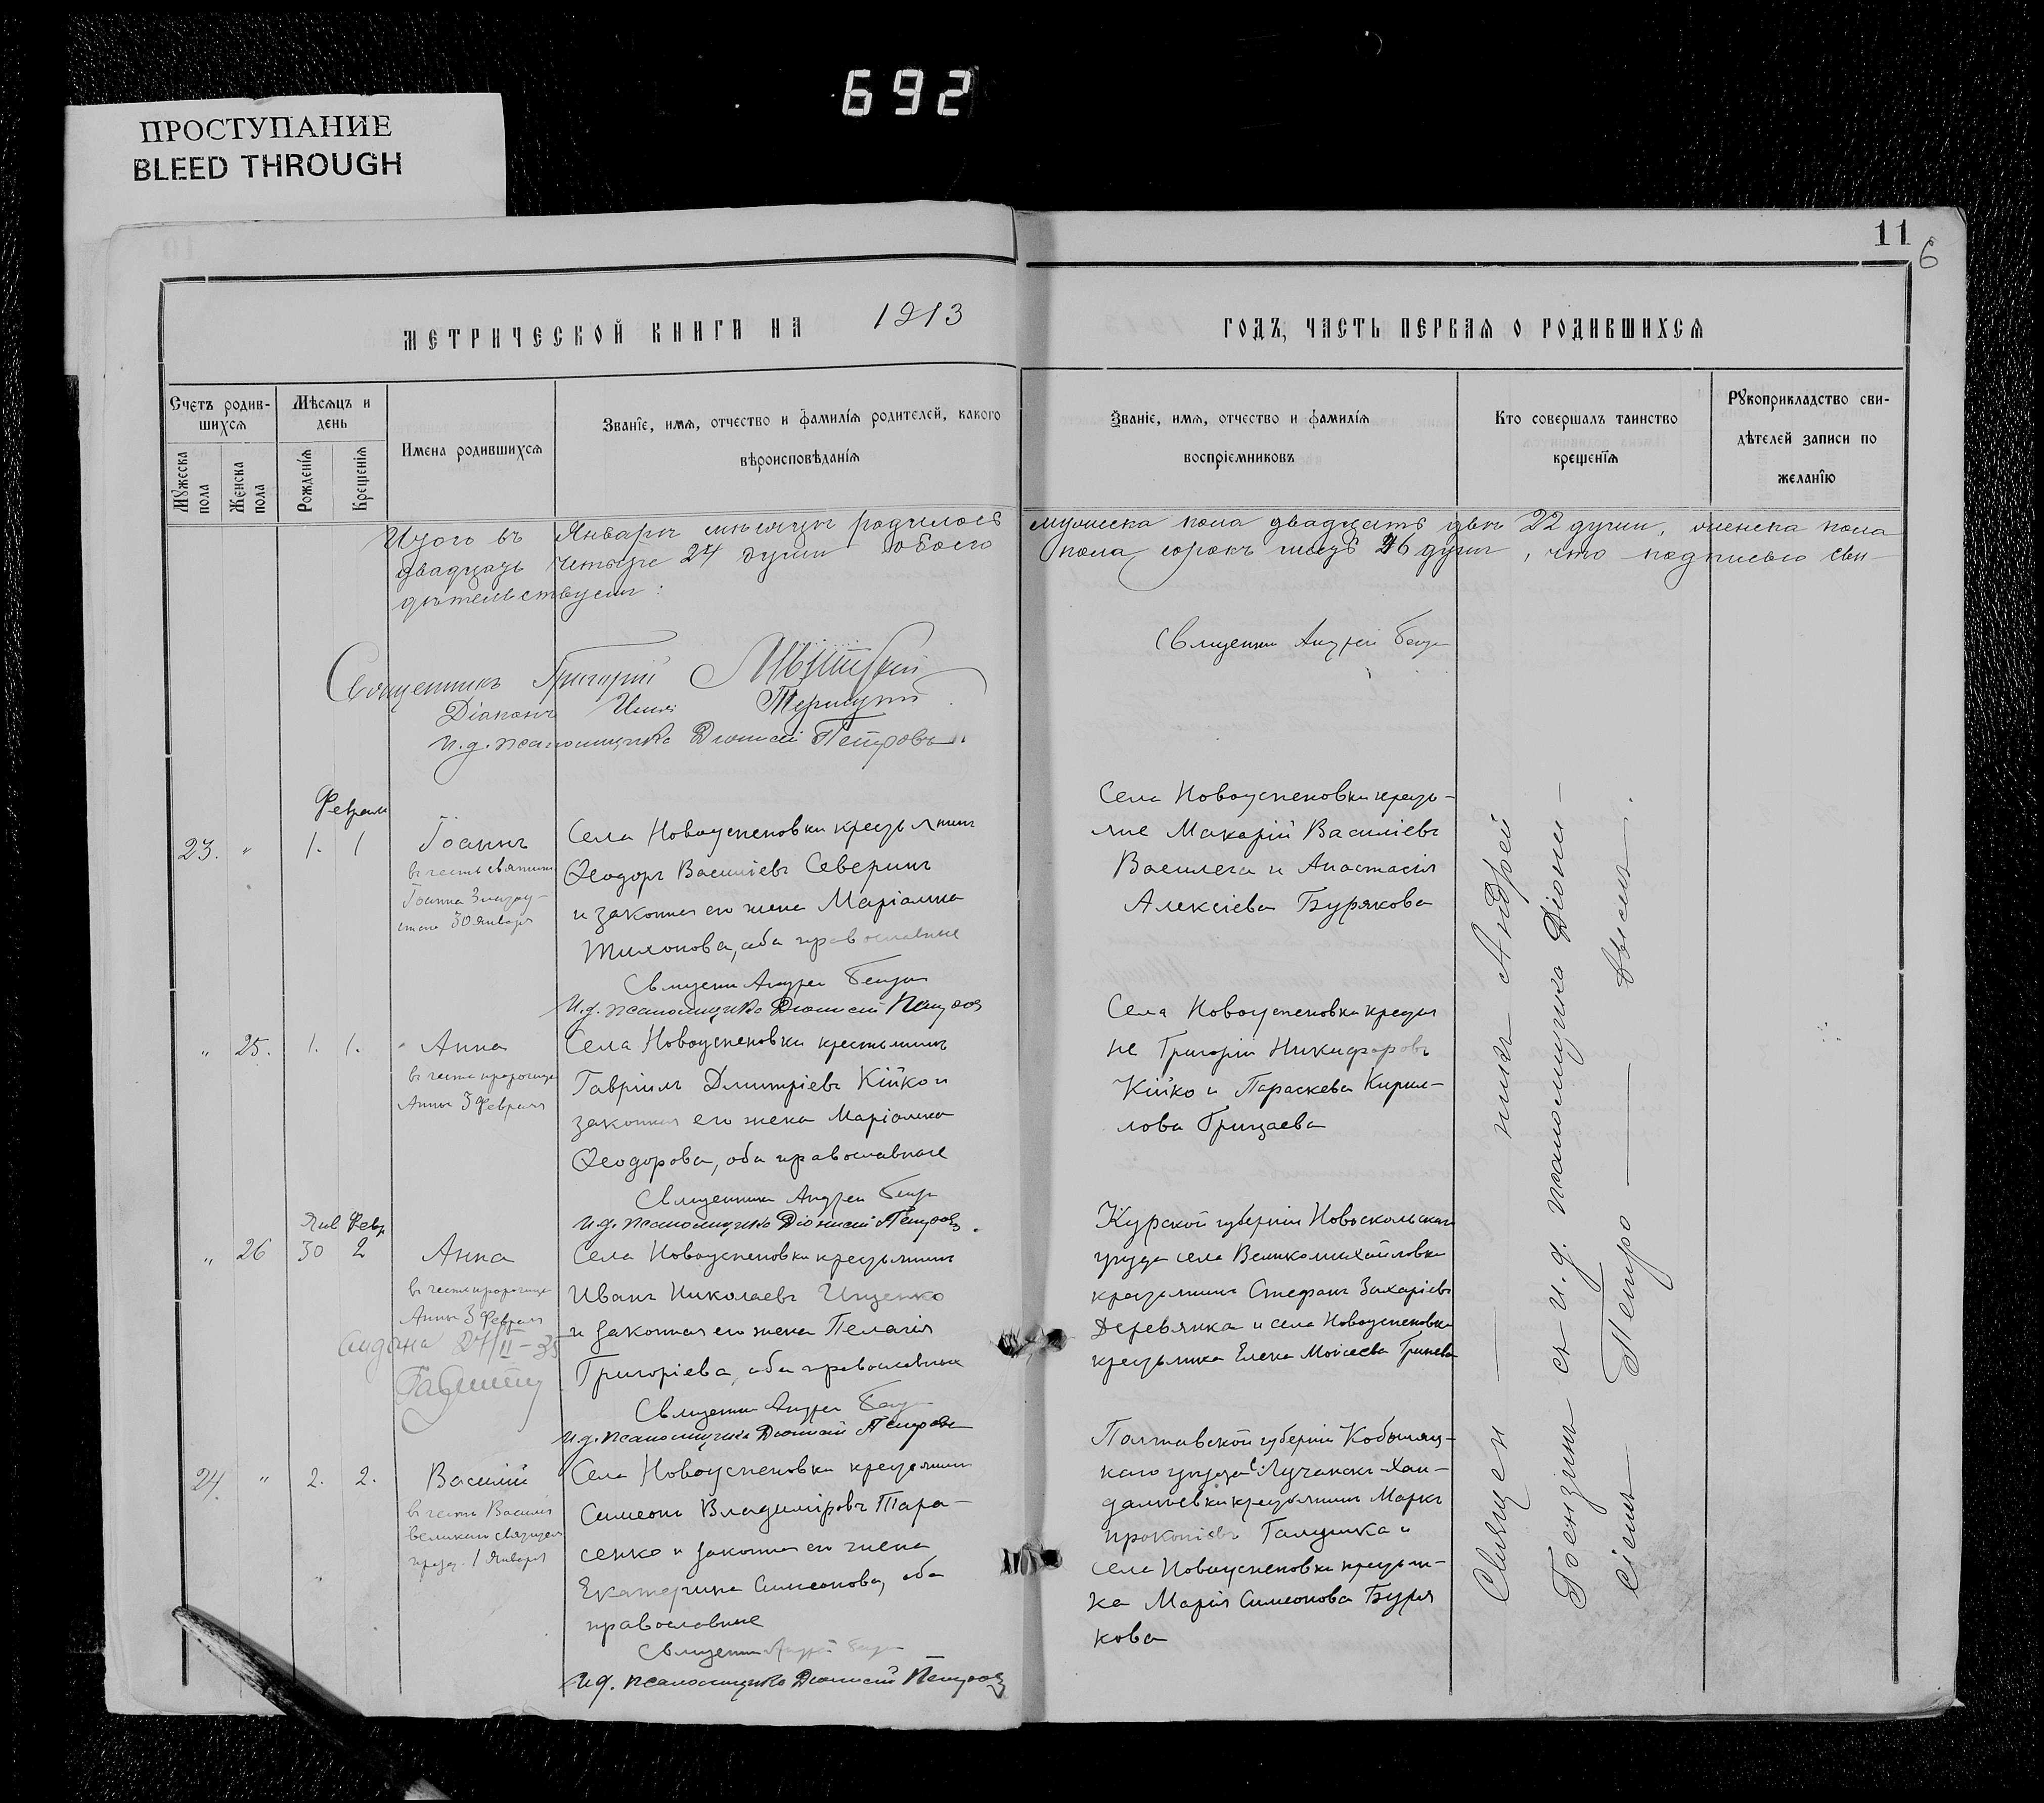 692
ПРОСТУПАНИЕ
BLEED THROUGH
11
6
МЕТРИЧЕСКОЙ КНИГИ НА 1913 ГОДЪ, ЧАСТЬ ПЕРВАЯ О РОДИВШИХСЯ
Счетъ родив-
шихся
Мѣсяцъ и
день
Мужеска
пола
Женска
пола
Рожденія
Крещенія
Имена родившихся
Званіе, имя, отчество и фамилія родителей, какого
вѣроисповѣданія
Званіе, имя, отчество и фамилія
воспріемниковъ
Кто совершалъ таинство
крещенія
Рукоприкладство сви-
дѣтелей записи по
желанію
Итого въ Январѣ мѣсяцѣ родилось мужеска пола двадцать двѣ 22 души, женска пола
двадцать четыре 24 души обоего пола сорокъ шесть 46 душъ, что подписью сви-
дѣтельствуемъ:
Священникъ Григорій
Діаконъ
и.д. псаломщика Діонисій Петровъ.
Священникъ Андрей
Февраль
23. " 1. 1
Іоаннъ
въ честь святит.
Іоанна Злато-
уста 30 января
Села Новоуспеновки крестьянинъ
Ѳеодоръ Василіевъ Северинъ
и законная его жена Маріамна
Тихонова, оба православные
Священ Андрей
И.д. псаломщика Діонисій Петровъ
Села Новоуспеновки кресть-
яне Макарій Василіевъ
Василега и Анастасія
Алексіева Бурякова
" 25. 1. 1.
Анна
въ честь пророчицы
Анны 3 Февраля
Села Новоуспеновки крестьянинъ
Гавріилъ Димитріевъ Кійко и
законная его жена Маріамна
Ѳеодорова, оба православные
Священникъ Андрей
И.д. псаломщика Діонисій Петровъ.
Села Новоуспеновки крестья
не Григорій Никифоровъ
Кійко и Параскева Кирил-
лова Грицаева
Янв Февр
" 26 30 2
Анна
въ честь пророчицы
Анны 3 Февраля
27/II-35
Села Новоуспеновки крестьянинъ
Иванъ Николаевъ Ищенко
и законная его жена Пелагія
Григоріева, оба православные
Священ Андрей
И.д. псаломщика Діонисій Петровъ
Курской губерніи Новоскольскаго
уѣзда села Великомихайловки
крестьянинъ Стефанъ Захаріевъ
Деревянка и села Новоуспеновки
крестьянка Елена Моисеева Гринева
24. " 2. 2.
Василій
въ честь Василія
великаго святителя
празд. 1 Января
Села Новоуспеновки крестьянинъ
Симеонъ Владиміровъ Тара-
сенко и законная его жена
Екатерина Симеонова, оба
православные
Священ Андрей
И.д. псаломщика Діонисій Петровъ
Полтавской губерніи Кобыляц-
каго уѣзда с.
крестьянинъ Маркъ
Прокопіевъ Галушка и
села Новоуспеновки крестьян-
ка Марія Симеонова Буря
кова
Священ — никъ Андрей
съ и.д. псаломщика Діони-
сіемъ — Петро — вымъ.